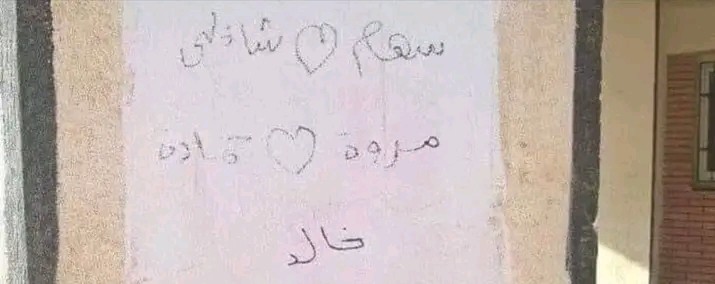 سهام ♡ شاذلي
مروة ♡ قادة
خالد